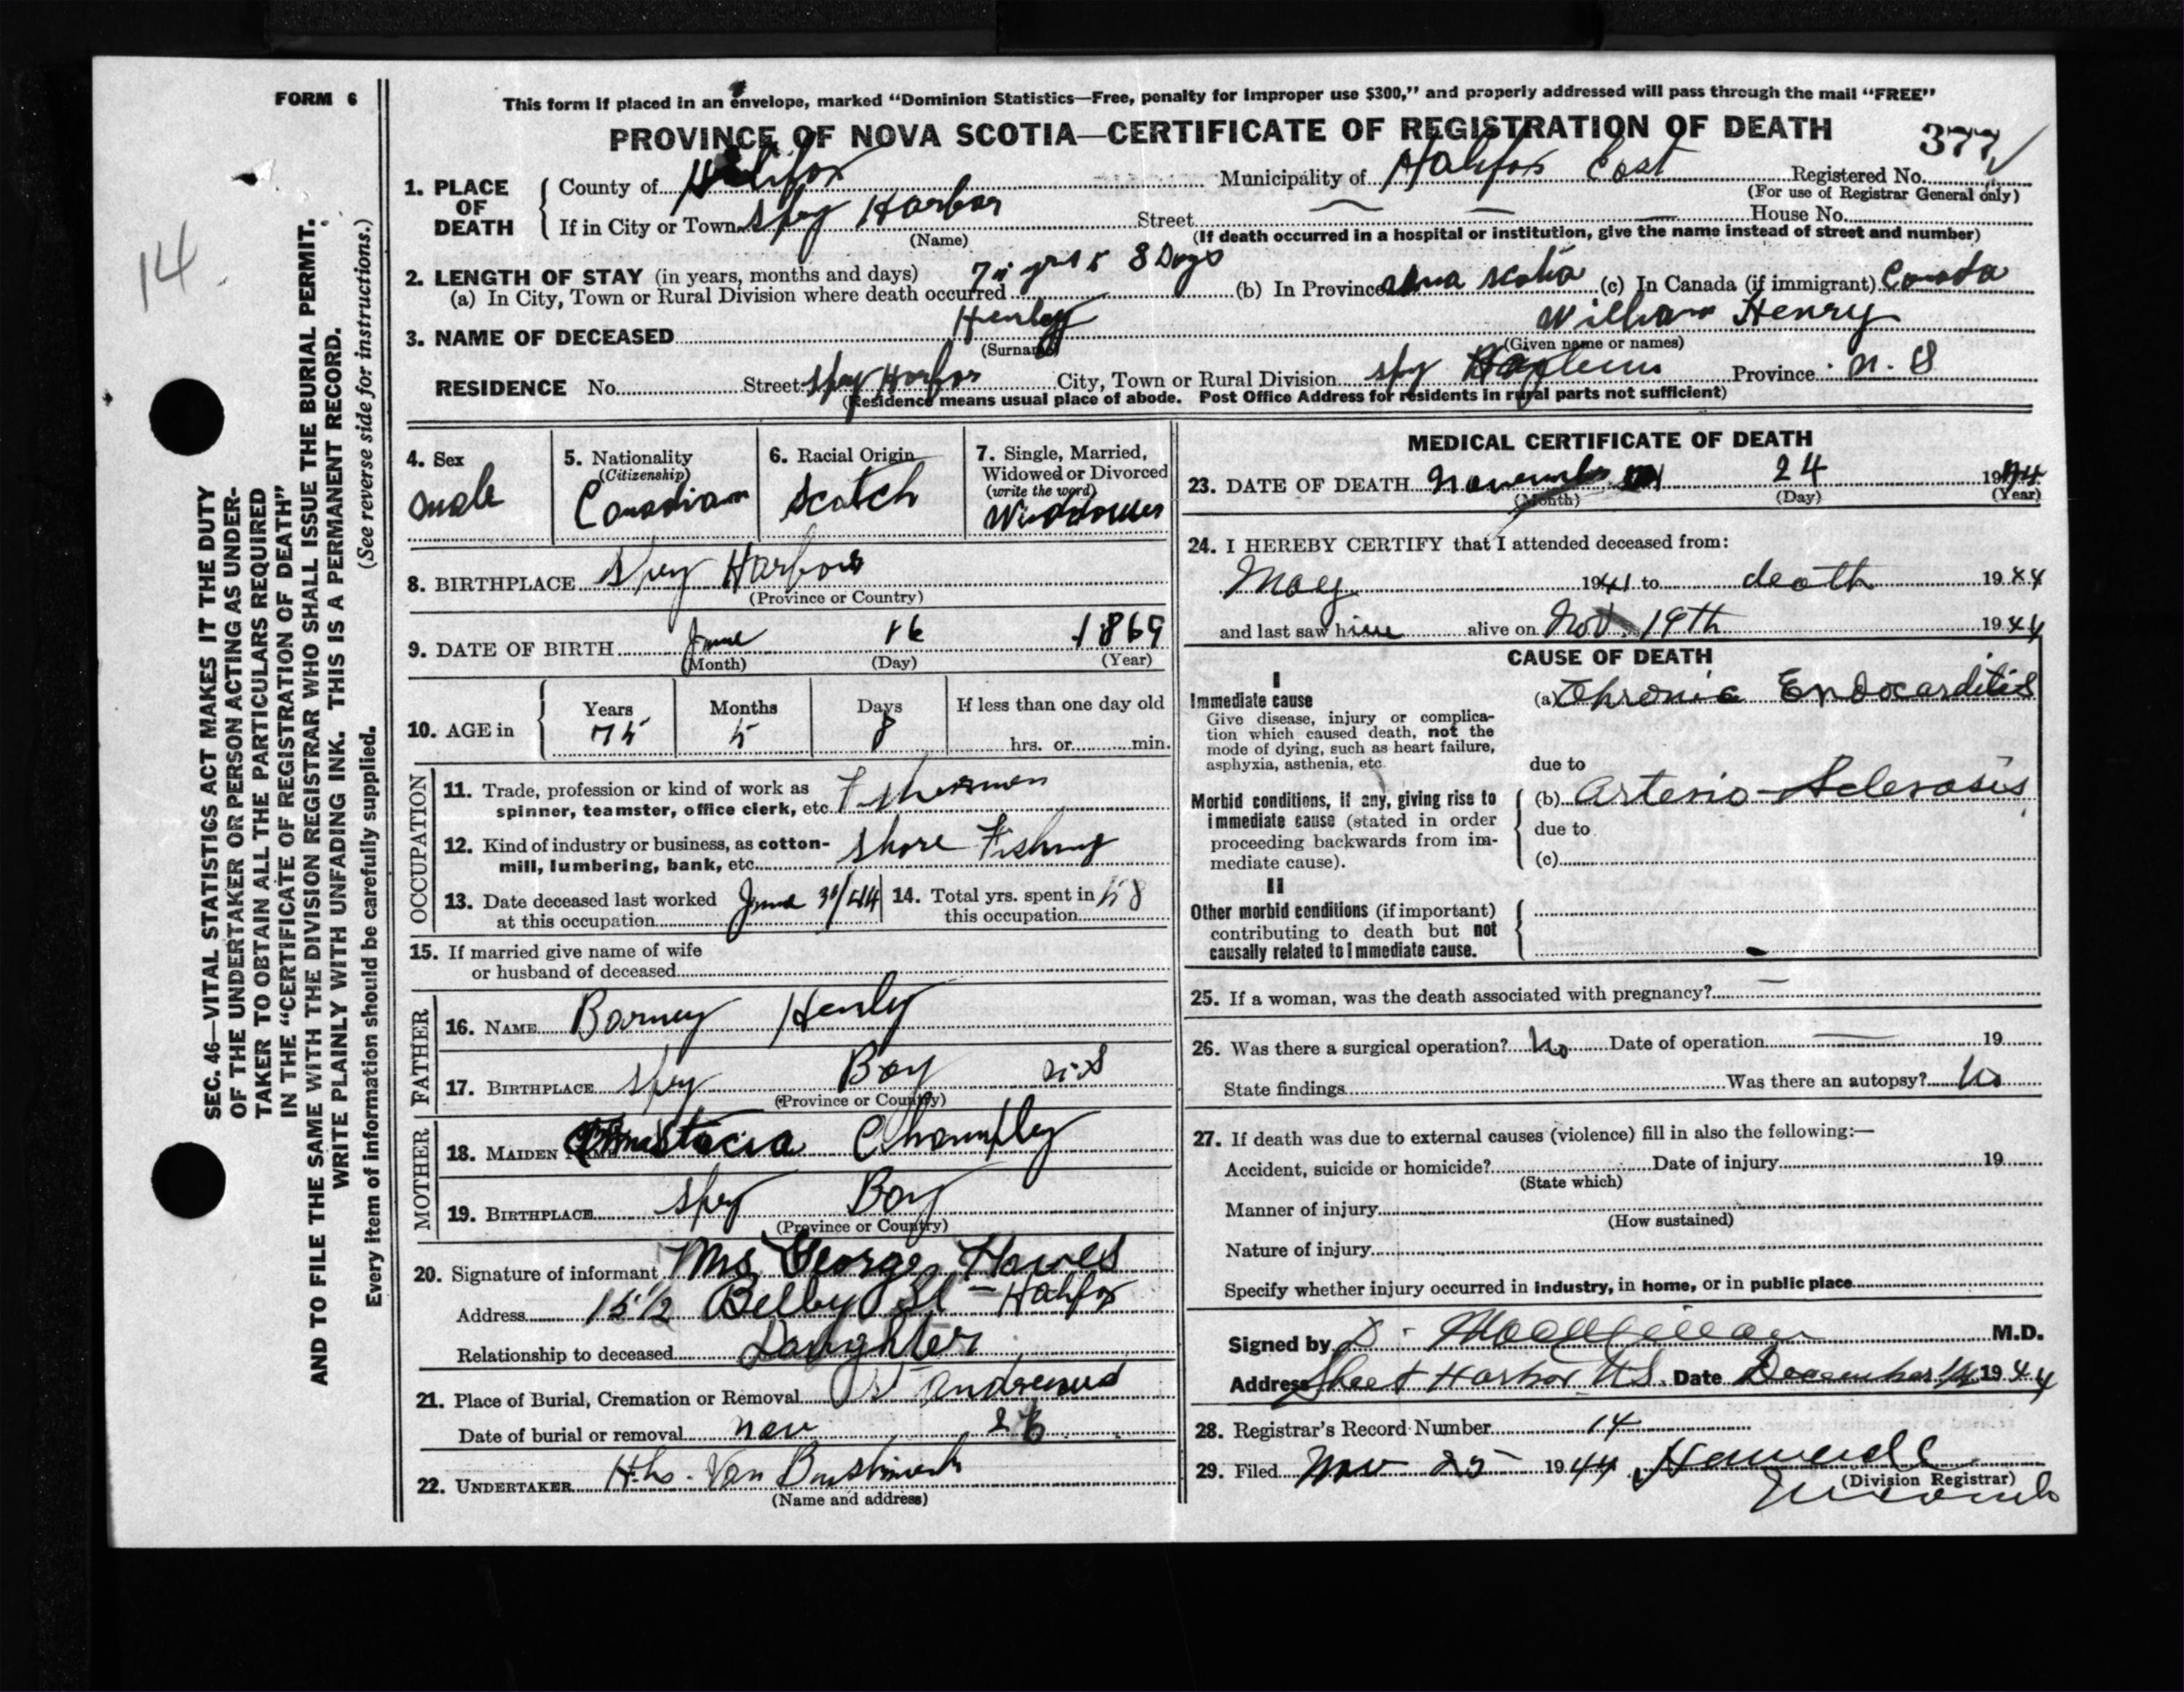 FORM 6
This form if placed in an envelope, marked “Dominion Statistics—Free, penalty for improper use $300,” and properly addressed will pass through the mail “FREE”
PROVINCE OF NOVA SCOTIA—CERTIFICATE OF REGISTRATION OF DEATH
377
14
SEC. 46—VITAL STATISTICS ACT MAKES IT THE DUTY
OF THE UNDERTAKER OR PERSON ACTING AS UNDER-
TAKER TO OBTAIN ALL THE PARTICULARS REQUIRED
IN THE “CERTIFICATE OF REGISTRATION OF DEATH”
AND TO FILE THE SAME WITH THE DIVISION REGISTRAR WHO SHALL ISSUE THE BURIAL PERMIT.
WRITE PLAINLY WITH UNFADING INK. THIS IS A PERMANENT RECORD.
(See reverse side for instructions.)
Every item of information should be carefully supplied.
1. PLACE OF DEATH
County of Halifax Municipality of Halifax East Registered No.
(For use of Registrar General only)
If in City or Town Spry Harbor Street House No.
(Name) (If death occurred in a hospital or institution, give the name instead of street and number)
2. LENGTH OF STAY (in years, months and days)
(a) In City, Town or Rural Division where death occurred 75 yrs 5 8 Days (b) In Province Nova Scotia (c) In Canada (if immigrant) Canada
3. NAME OF DECEASED Henley William Henry
(Surname) (Given name or names)
RESIDENCE No. Street Spry Harbor City, Town or Rural Division Spry Province N. S
(Residence means usual place of abode. Post Office Address for residents in rural parts not sufficient)
4. Sex
male
5. Nationality
(Citizenship)
Canadian
6. Racial Origin
Scotch
7. Single, Married,
Widowed or Divorced
(write the word)
Widdower
8. BIRTHPLACE Spry Harbor
(Province or Country)
9. DATE OF BIRTH June 16 1869
(Month) (Day) (Year)
10. AGE in
Years Months Days If less than one day old
75 5 8 hrs. or min.
OCCUPATION
11. Trade, profession or kind of work as
spinner, teamster, office clerk, etc. Fisherman
12. Kind of industry or business, as cotton-
mill, lumbering, bank, etc. Shore Fishing
13. Date deceased last worked
at this occupation June 30/44
14. Total yrs. spent in
this occupation 58
15. If married give name of wife
or husband of deceased
FATHER
16. NAME Barney Henly
17. BIRTHPLACE Spry Bay N.S
(Province or Country)
MOTHER
18. MAIDEN NAME
19. BIRTHPLACE Spry Bay
(Province or Country)
20. Signature of informant Mrs George Hawes
Address 15 1/2 Belby St - Halifax
Relationship to deceased Daughter
21. Place of Burial, Cremation or Removal St Andrews
Date of burial or removal Nov 26
22. UNDERTAKER Van
(Name and address)
MEDICAL CERTIFICATE OF DEATH
23. DATE OF DEATH November 24 1944
(Month) (Day) (Year)
24. I HEREBY CERTIFY that I attended deceased from:
May 1941 to death 1944
and last saw him alive on Nov. 19th 1944
CAUSE OF DEATH
I
Immediate cause
Give disease, injury or complica-
tion which caused death, not the
mode of dying, such as heart failure,
asphyxia, asthenia, etc.
(a) Chronic Endocarditis
due to
Morbid conditions, if any, giving rise to
immediate cause (stated in order
proceeding backwards from im-
mediate cause).
(b) Arterio-Sclerosis
due to
(c)
II
Other morbid conditions (if important)
contributing to death but not
causally related to immediate cause.
25. If a woman, was the death associated with pregnancy? —
26. Was there a surgical operation? No Date of operation — 19
State findings Was there an autopsy? No
27. If death was due to external causes (violence) fill in also the following:—
Accident, suicide or homicide? Date of injury 19
(State which)
Manner of injury
(How sustained)
Nature of injury
Specify whether injury occurred in industry, in home, or in public place
Signed by D. M.D.
Address Sheet Harbor N.S. Date December 1944
28. Registrar's Record Number 14
29. Filed Nov 25 1944
(Division Registrar)